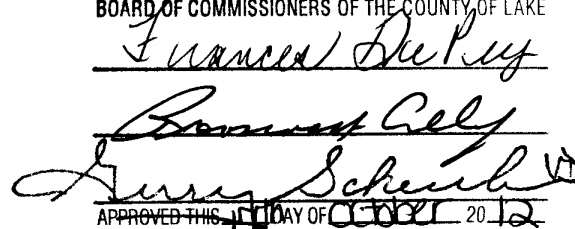 BOARD OF COMMISSIONERS OF THE COUNTY OF LAKE
Frances DuPey
Gerry Scheub
APPROVED THIS 17th DAY OF October 2012